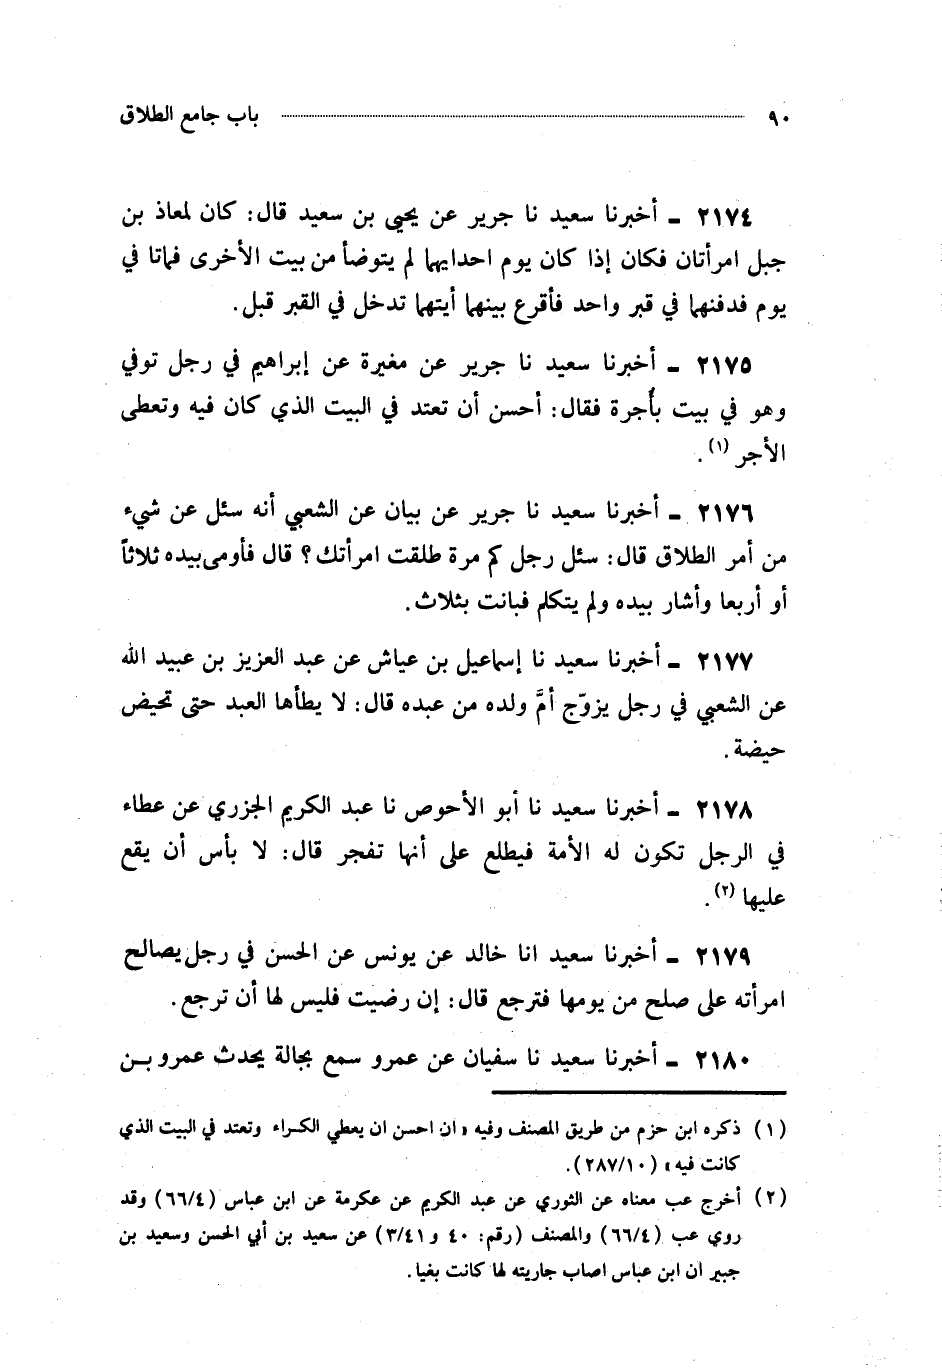 ٩٠ باب جامع الطلاق
٢١٧٤ ـ أخبرنا سعيد نا جرير عن يحيى بن سعيد قال: كان لمعاذ بن
جبل امرأتان فكان إذا كان يوم احدايهما لم يتوضأ من بيت الأخرى فماتا في
يوم فدفنهما في قبر واحد فأقرع بينهما أيتهما تدخل في القبر قبل.
٢١٧٥ ـ أخبرنا سعيد نا جرير عن مغيرة عن إبراهيم في رجل توفي
وهو في بيت بأُجرة فقال: أحسن أن تعتد في البيت الذي كان فيه وتعطى
الأجر (١).
٢١٧٦ ـ أخبرنا سعيد نا جرير عن بيان عن الشعبي أنه سئل عن شيء
من أمر الطلاق قال: سئل رجل كم مرة طلقت امرأتك؟ قال فأومى بيده ثلاثاً
أو أربعا وأشار بيده ولم يتكلم فبانت بثلاث.
٢١٧٧ ـ أخبرنا سعيد نا إسماعيل بن عياش عن عبد العزيز بن عبيد الله
عن الشعبي في رجل يزوّج أمَّ ولده من عبده قال: لا يطأها العبد حتى تحيض
حيضة.
٢١٧٨ ـ أخبرنا سعيد نا أبو الأحوص نا عبد الكريم الجزري عن عطاء
في الرجل تكون له الأمة فيطلع على أنها تفجر قال: لا بأس أن يقع
عليها (٢).
٢١٧٩ ـ أخبرنا سعيد انا خالد عن يونس عن الحسن في رجل يصالح
امرأته على صلح من يومها فترجع قال: إن رضيت فليس لها أن ترجع.
٢١٨٠ ـ أخبرنا سعيد نا سفيان عن عمرو سمع بجالة يحدث عمرو بـن
(١) ذكره ابن حزم من طريق المصنف وفيه «ان احسن ان يعطي الكـراء وتعتد في البيت الذي
كانت فيه» (٢٨٧/١٠).
(٢) أخرج عب معناه عن الثوري عن عبد الكريم عن عكرمة عن ابن عباس (٦٦/٤) وقد
روي عب (٦٦/٤) والمصنف (رقم: ٤٠ و ٣/٤١) عن سعيد بن أبي الحسن وسعيد بن
جبير ان ابن عباس اصاب جاريته لها كانت بغيا.